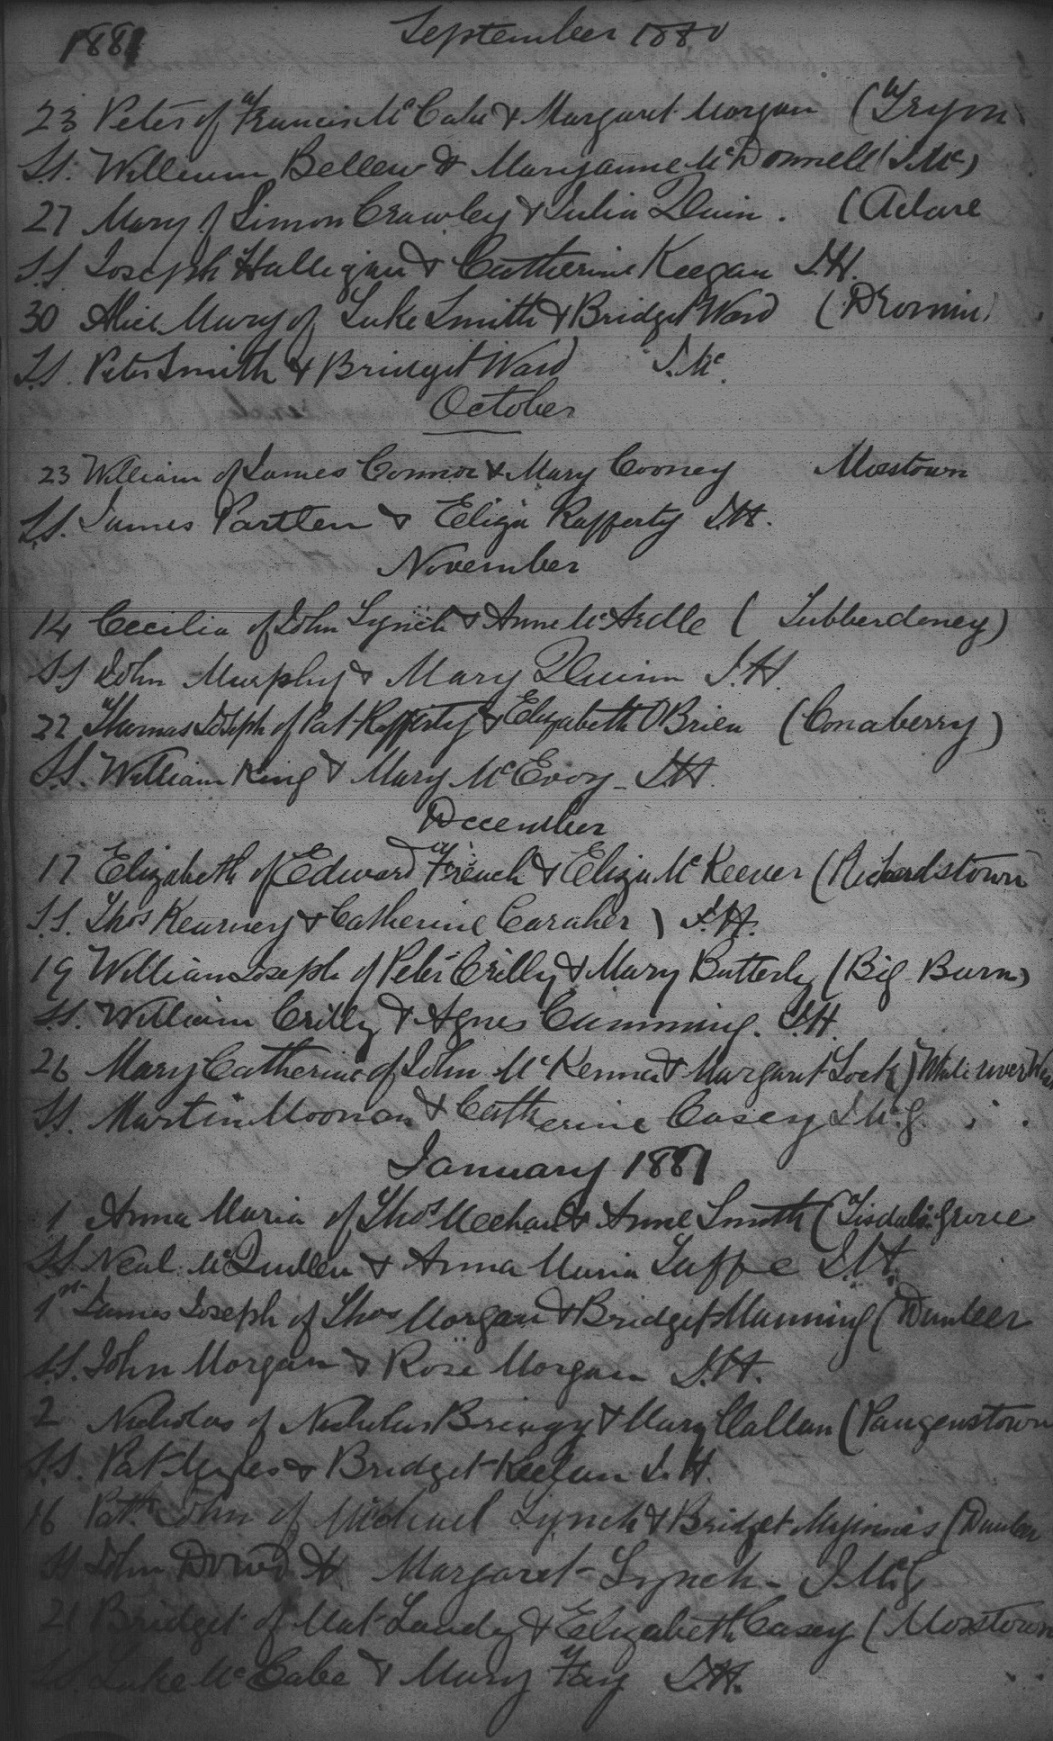 1881
September 1880
23 Peter of Francis McCabe & Margaret Morgan (
S.S. William Bellew & Maryanne McDonnell (J.Mc)
27 Mary of Simon Crawley & Julia Quin. (Adare
S.S. Joseph Halligan & Catherine Keegan J.H.
30 Alice Mary of Luke Smith & Bridget Ward (Dromin)
S.S. Peter Smith & Bridget Ward J.Mc.
October
23 William of James Connor & Mary Cooney Mosstown
S.S. James Partlen & Eliza Rafferty J.H.
November
14 Cecilia of John Lynch & Anne McArdle (Tubberdoney)
S.S John Murphy & Mary Quinn J.H.
22 Thomas Joseph of Pat Rafferty & Elizabeth OBrien (Conaberry)
S.S. William King & Mary McEvoy_ J.H.
December
17 Elizabeth of Edward French & Eliza McKeever (Richardstown
S.S. Thos Kearney & Catherine Caraher) J.H.
19 William Joseph of Peter Crilly & Mary Butterly (Big Barn)
S.S. William Crilly & Agnes Cumming. J.H.
26 Mary Catherine of John McKenna & Margaret Lock) White river
S.S. Martin Moonan & Catherine Casey J.McG.
January 1881
1 Anna Maria of Thos Meehan & Anne Smith (Tisdal's Grove
S.S Neal McQuillen & Anna Maria Taffe J.H.
1st James Joseph of Thos Morgan & Bridget Manning (Dunleer
S.S. John Morgan & Rose Morgan J.H.
2 Nicholas of Nicholas & Mary Callan (Paugenstown
S.S. Pat & Bridget Keelan J.H.
16 Patk John of Michael Lynch & Bridget (Dunleer
SS John Dowd & Margaret Lynch_ J.McG
21 Bridget of Mat Landy & Elizabeth Casey (Mosstown
SS Luke McCabe & Mary Fay J.H.